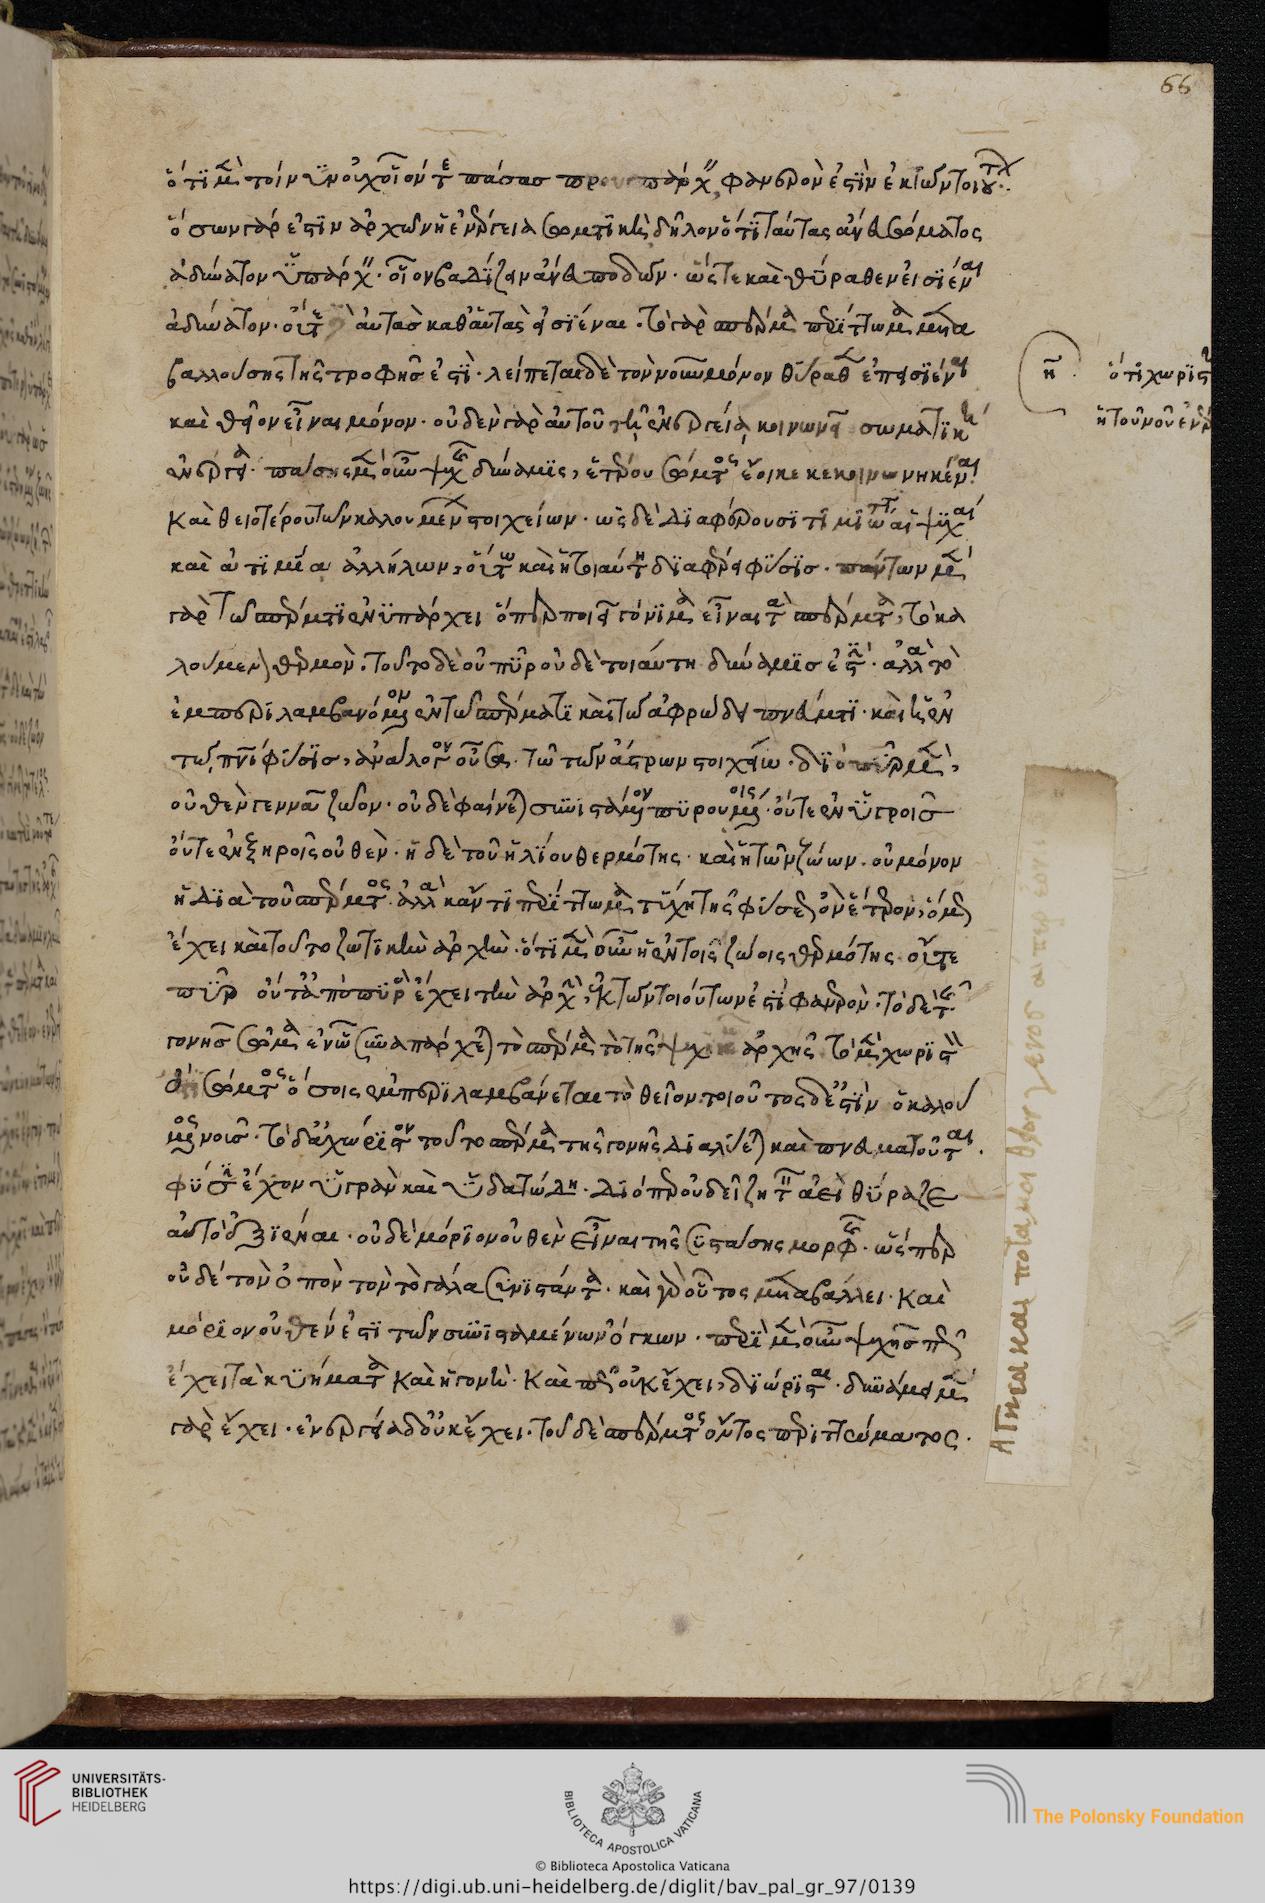 66
ὅτι μὲν τοίνυν οὐχ οἷόν τε πάσας προϋπάρχειν, φανερόν ἐστιν ἐκ τῶν τοιούτων·
ὅσων γάρ ἐστιν ἀρχῶν ἡ ἐνέργεια σωματικὴ δῆλον ὅτι ταύτας ἄνευ σώματος
ἀδύνατον ὑπάρχειν· οἷον βαδίζειν ἄνευ ποδῶν· ὥστε καὶ θύραθεν εἰσιέναι
ἀδύνατον· οὔτε αὐτὰς καθ' αὑτὰς εἰσιέναι· τὸ γὰρ σπέρμα περίττωμα μετα
βαλλούσης τῆς τροφῆς ἐστί· λείπεται δὲ τὸν νοῦν μόνον θύραθεν ἐπεισιέναι
καὶ θεῖον εἶναι μόνον· οὐδὲν γὰρ αὐτοῦ τῇ ἐνεργείᾳ κοινωνεῖ σωματικὴ
ἐνέργεια· πάσης μὲν οὖν ψυχῆς δύναμις, ἑτέρου σώματος ἔοικε κεκοινωνηκέναι
καὶ θειοτέρου τῶν καλουμένων στοιχείων· ὡς δὲ διαφέρουσι τιμιότητι αἱ ψυχαὶ
καὶ ἀτιμίᾳ ἀλλήλων, οὕτω καὶ ἡ τοιαύτη διαφέρει φύσις· πάντων μὲν
γὰρ τῷ σπέρματι ἐνυπάρχει ὅπερ ποιεῖ γόνιμα εἶναι τὰ σπέρματα, τὸ κα
λούμενον θερμόν· τοῦτο δὲ οὐ πῦρ οὐδὲ τοιαύτη δύναμις ἐστίν· ἀλλὰ τὸ
ἐμπεριλαμβανόμενον ἐν τῷ σπέρματι καὶ τῷ ἀφρώδει πνεύματι· καὶ ἡ ἐν
τῷ πνι φύσις, ἀνάλογον οὖσα τῷ τῶν ἄστρων στοιχείῳ· διὸ πῦρ μὲν,
οὐθὲν γεννᾷ ζῷον· οὐδὲ φαίνεται συνιστάμενον πυρουμένοις· οὔτε ἐν ὑγροῖς
οὔτε ἐν ξηροῖς οὐθέν· ἡ δὲ τοῦ ἡλίου θερμότης· καὶ ἡ τῶν ζώων· οὐ μόνον
ἡ διὰ τοῦ σπέρματος· ἀλλὰ κἄν τι περίττωμα τύχῃ τῆς φύσεως ὂν ἕτερον, ὅμως
ἔχει καὶ τοῦτο ζωτικὴν ἀρχήν· ὅτι μὲν οὖν ἡ ἐν τοῖς ζώοις θερμότης οὔτε
πῦρ οὔτ' ἀπὸ πυρὸς ἔχει τὴν ἀρχὴν, ἐκ τῶν τοιούτων ἐστὶ φανερόν· τὸ δὲ τῆς
γονῆς σῶμα ἐν ᾧ συναπέρχεται τὸ σπέρμα τὸ τῆς ψυχικῆς ἀρχῆς τὸ μὲν χωριστὸν
ὂν σώματος ὅσοις ἐμπεριλαμβάνεται τὸ θεῖον. τοιοῦτος δέ ἐστὶν ὁ καλού
μενος νοῦς· τὸ δ' ἀχώριστον τοῦτο σπέρμα τῆς γονῆς διαλύεται καὶ πνευματοῦται·
φύσιν ἔχον ὑγρὰν καὶ ὑδατώδη· διόπερ οὐ δεῖ ζητεῖν ἀεὶ θύραζε
αὐτὸ ἐξιέναι· οὐδὲ μόριον οὐθὲν εἶναι τῆς συστάσης μορφῆς· ὥσπερ
οὐδὲ τὸν ὀπὸν τὸν τὸ γάλα συνιστάντα· καὶ γὰρ οὗτος μεταβάλλει· καὶ
μόριον οὐθέν ἐστι τῶν συνισταμένων ὄγκων· περὶ μὲν οὖν ψυχῆς πῶς
ἔχει τὰ κυήματα καὶ ἡ γονὴ· καὶ πῶς οὐκ ἔχει, διώρισται· δυνάμει μὲν
γὰρ ἔχει· ἐνεργείᾳ δ' οὐκ ἔχει· τοῦ δὲ σπέρματος ὄντος περιττώματος·
ἢ
ὅτι χωρὶς
ἡ τοῦ νοῦ
UNIVERSITÄTS-
BIBLIOTHEK
HEIDELBERG
BIBLIOTECA APOSTOLICA VATICANA
The Polonsky Foundation
© Biblioteca Apostolica Vaticana
https://digi.ub.uni-heidelberg.de/diglit/bav_pal_gr_97/0139